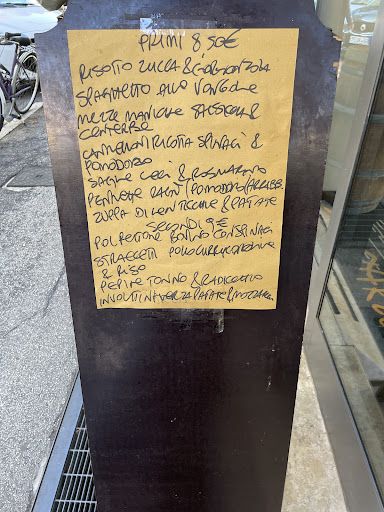 PRIMI 8,50€
RISOTTO ZUCCA & GORGONZOLA
SPAGHETTO ALLE VONGOLE
MEZZE MANICHE SALSICCIA &
CENTERBE
CANNELLONI RICOTTA SPINACI &
POMODORO
SAGNE CECI & ROSMARINO
PENNETTE RAGÙ/POMODORO/ARRABB.
ZUPPA DI LENTICCHIE & PATATE
SECONDI 9€
POLPETTONE BOVINO CON SPINACI
STRACCETTI POLLO CURRY CAROTINE
& RISO
PEPITE TONNO & RADICCHIO
INVOLTINI VERZA PATATE & MOZZARE.